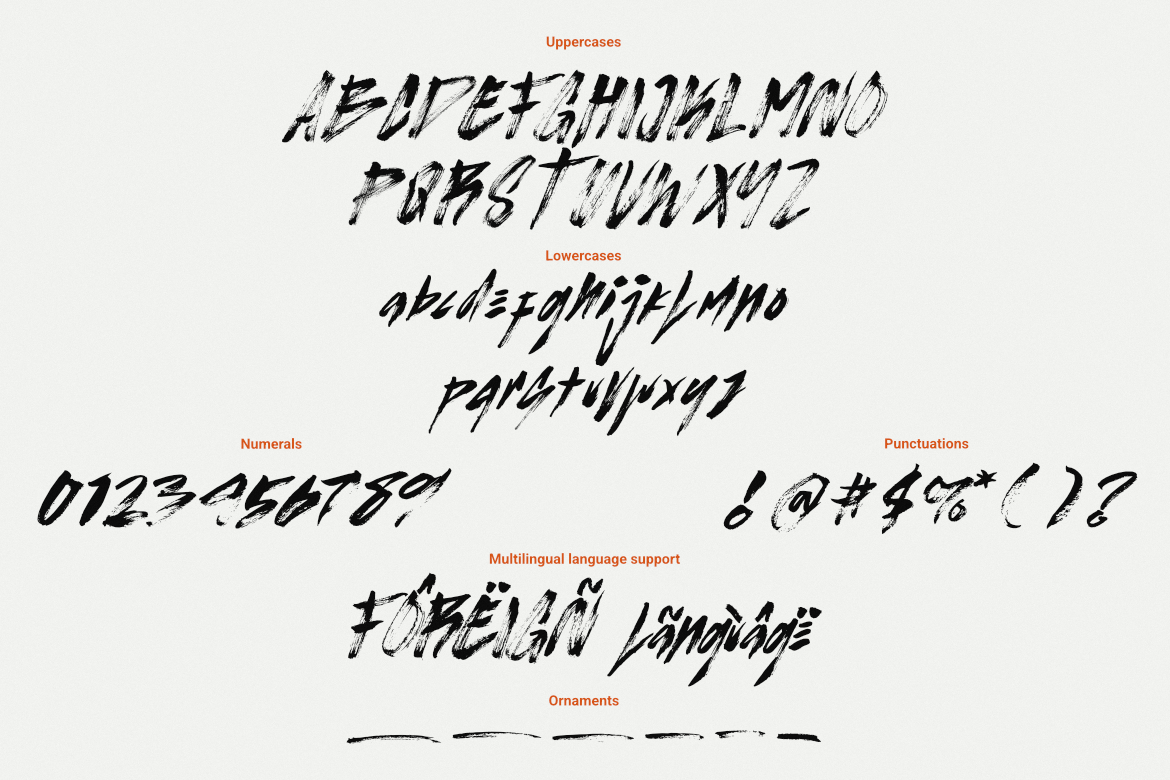 Uppercases
ABCDEFGHIJKLMNO
PQRSTUVWXYZ
Lowercases
abcdefghijklmno
pqrstuvwxyz
Numerals
0123456789
Punctuations
!@#$%*()?
Multilingual language support
FÔRËIGÑ Lãngùâgë
Ornaments